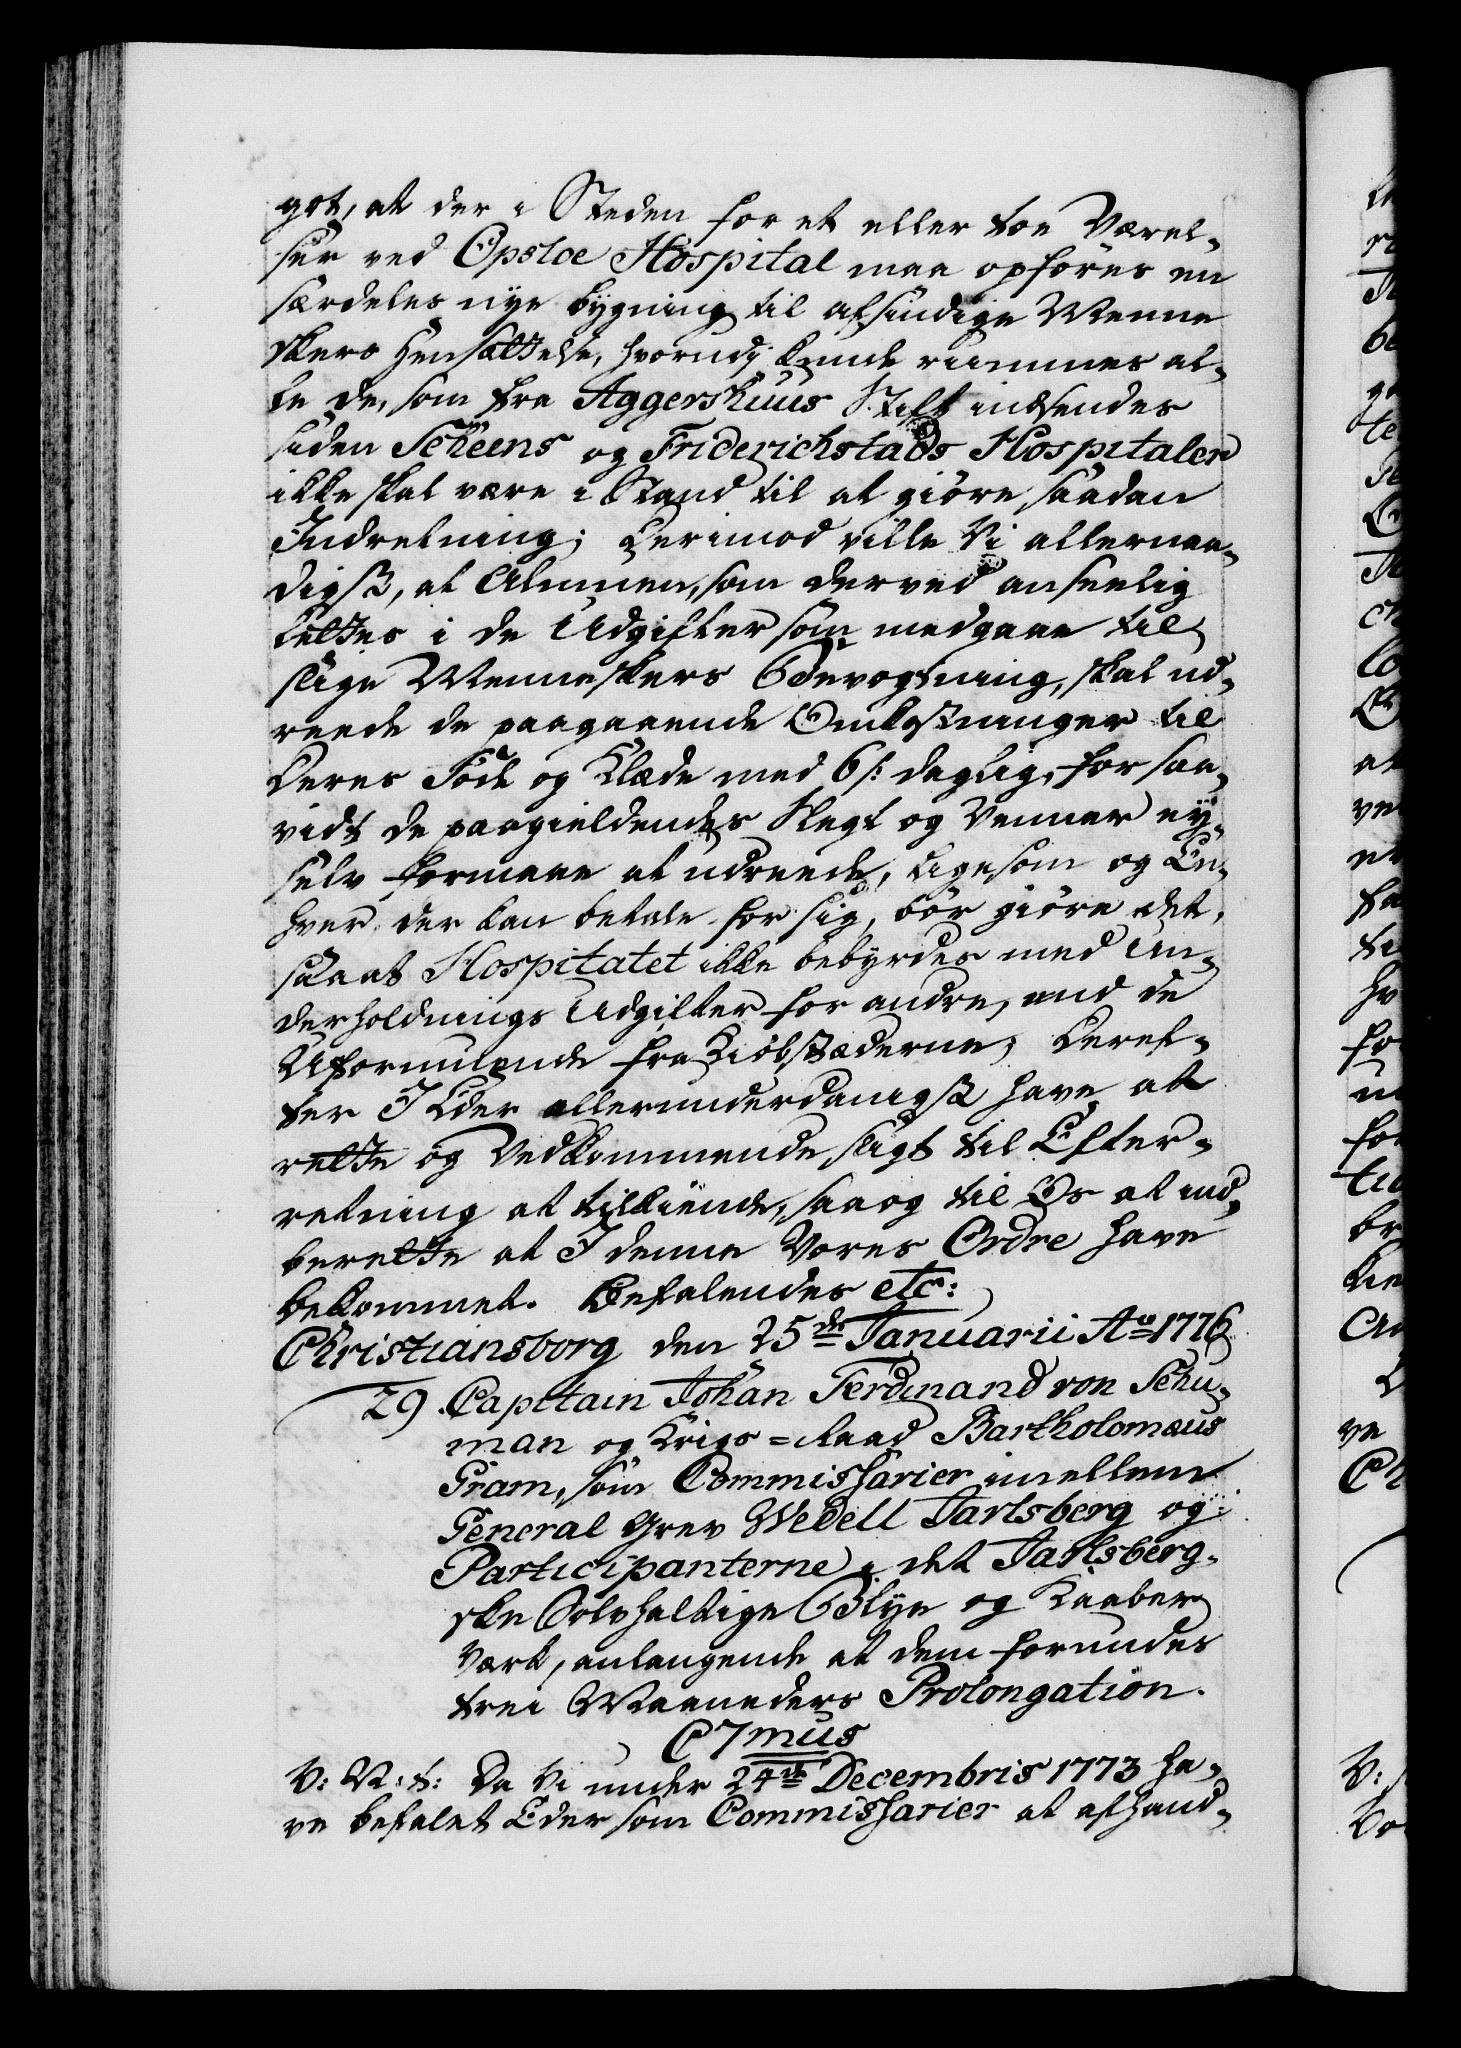 got, at der i Steden for et eller toe Værel¬
ser ved Opsloe Hospital maa opføres en
særdeles nye bygning til afsindige Menne
skers Hensættelse, hvorudj kunde rummes al¬
le de, som fra Aggershuus Stift indsendes
siden Scheens og Friderichstads Hospitaler
ikke skal være i Stand til at giöre saadan
Indretning; Derimod ville Vi allernaa¬
digst, at Almuen, som derved anseelig
lettes i de Udgifter som medgaae til
slige Menneskers Bevogtning, skal ud¬
reede de paagaaende Omkostninger til
deres Föde og Klæde med 6 s: daglig, for saa¬
vidt de paagieldendes Slegt og Venner ey
selv formaae at udreede, ligesom og En¬
hver der kan betale for sig, bör giöre det,
saa at Hospitalet ikke bebyrdes med Un¬
derholdnings Udgifter for andre, end de
Uformuende fra Kiöbstæderne; Deref¬
ter I Eder allerunderdanigst have at
rette og Vedkommende sligt til Efter¬
retning at tilkiende, saa og til Os at ind¬
berette at I denne Vores Ordre have
bekommet. Befalendes etc:
Christiansborg den 25de Januarii Ao 1776
29. Capitain Johan Ferdinand von Schu¬
man og Krigs=Raad Bartholomæus
Gram, som Commissarier imellem
General Grev Wedell Jarlsberg og
Participanterne i det Jarlsberg¬
ske Sölvholtige Blye og Kaaber
Værk, anlangende at dem forundes
trei Maaneders Prolongation.
C7mus
V: G: t: Da Vi under 24de Decembris 1773 ha¬
ve befalet Eder som Commissarier at afhand¬